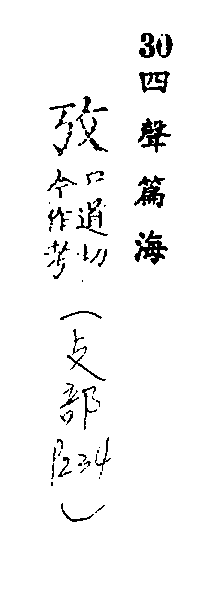 30 四聲篇海
攷 口道切
今作考
(攴部
P234)